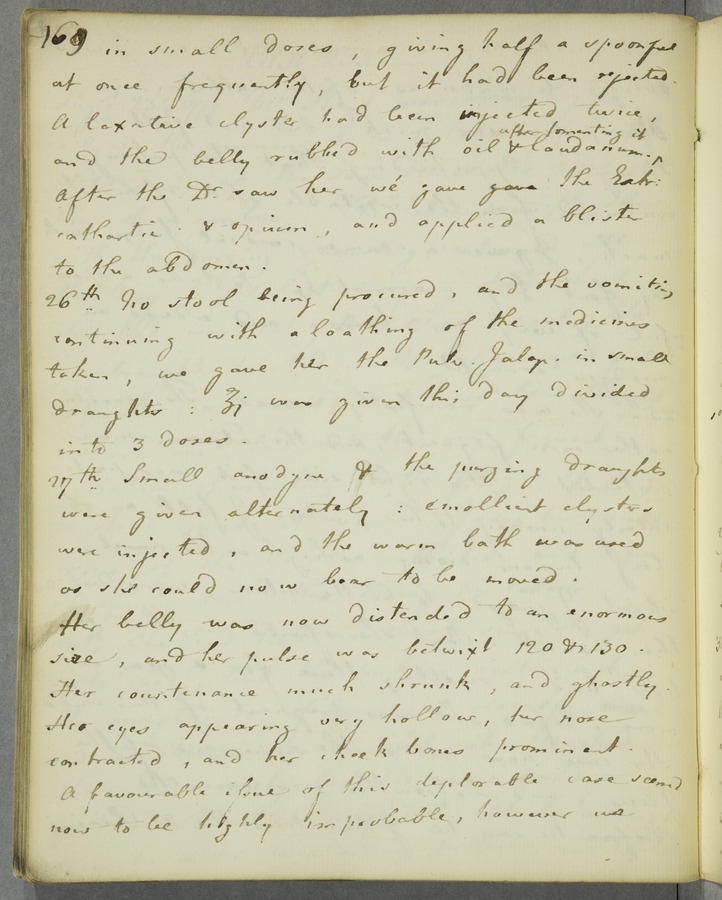 169 in small doses, giving half a spoonful
at once frequently, but it had been rejected.
A laxative clyster had been injected twice,
after fomenting it
and the belly rubbed with oil & laudanum.
After the Dr. saw her we gave gave the Extr:
cathartic. & opium, and applied a blister
to the abdomen.
26th No stool being procured, and the vomiting
continuing with a loathing of the medicines
taken, we gave her the Pulv. Jalap. in small
draughts: ʒj was given this day divided
into 3 doses.
27th Small anodyne & the purging draughts
were given alternately: emollient clysters
were injected, and the warm bath was used
as she could now bear to be moved.
Her belly was now distended to an enormous
size, and her pulse was betwixt 120 & 130.
Her countenance much shrunk, and ghastly.
Her eyes appearing very hollow, her nose
contracted, and her cheek bones prominent.
A favourable issue of this deplorable case seemd
now to be highly improbable, however we